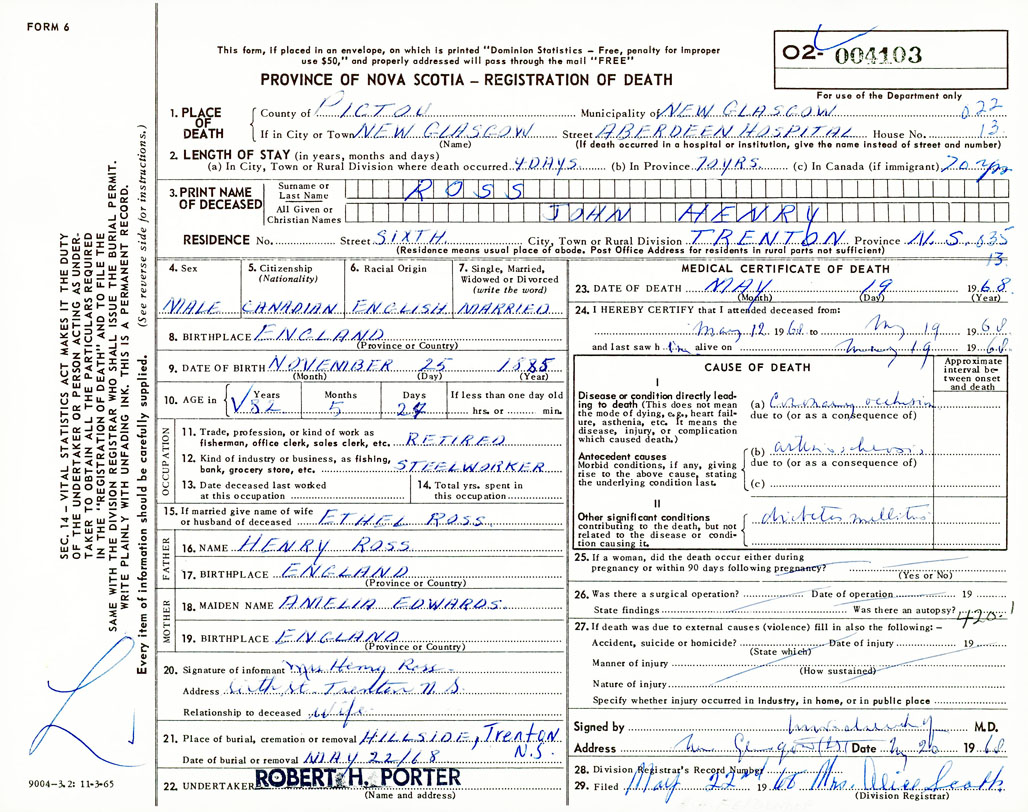 FORM 6
This form, if placed in an envelope, on which is printed "Dominion Statistics – Free, penalty for improper
use $50," and properly addressed will pass through the mail "FREE"
PROVINCE OF NOVA SCOTIA – REGISTRATION OF DEATH
O2- 004103
For use of the Department only
1. PLACE OF DEATH
County of PICTOU Municipality of NEW GLASGOW 022
If in City or Town NEW GLASGOW Street ABERDEEN HOSPITAL House No. 13
(Name) (If death occurred in a hospital or institution, give the name instead of street and number)
2. LENGTH OF STAY (in years, months and days)
(a) In City, Town or Rural Division where death occurred 4 DAYS (b) In Province 70 YRS. (c) In Canada (if immigrant) 70 yrs
3. PRINT NAME OF DECEASED
Surname or Last Name ROSS
All Given or Christian Names JOHN HENRY
RESIDENCE No. Street SIXTH City, Town or Rural Division TRENTON Province N.S. 035
(Residence means usual place of abode. Post Office Address for residents in rural parts not sufficient)
13
4. Sex MALE
5. Citizenship (Nationality) CANADIAN
6. Racial Origin ENGLISH
7. Single, Married, Widowed or Divorced (write the word) MARRIED
8. BIRTHPLACE ENGLAND
(Province or Country)
9. DATE OF BIRTH NOVEMBER 25 1885
(Month) (Day) (Year)
10. AGE in Years 82 Months 5 Days 24 If less than one day old hrs. or min.
OCCUPATION
11. Trade, profession, or kind of work as
fisherman, office clerk, sales clerk, etc. RETIRED
12. Kind of industry or business, as fishing,
bank, grocery store, etc. STEELWORKER
13. Date deceased last worked
at this occupation
14. Total yrs. spent in
this occupation
15. If married give name of wife
or husband of deceased ETHEL ROSS
FATHER
16. NAME HENRY ROSS
17. BIRTHPLACE ENGLAND
(Province or Country)
MOTHER
18. MAIDEN NAME AMELIA EDWARDS.
19. BIRTHPLACE ENGLAND
(Province or Country)
20. Signature of informant Mrs Henry Ross
Address Sixth St. Trenton N.S.
Relationship to deceased wife
21. Place of burial, cremation or removal HILLSIDE, Trenton N.S.
Date of burial or removal MAY 22/68
22. UNDERTAKER ROBERT H. PORTER
(Name and address)
MEDICAL CERTIFICATE OF DEATH
23. DATE OF DEATH MAY 19 1968
(Month) (Day) (Year)
24. I HEREBY CERTIFY that I attended deceased from:
May 12 1968 to May 19 1968
and last saw him alive on May 19 1968
CAUSE OF DEATH
Approximate interval between onset and death
I
Disease or condition directly leading to death (This does not mean the mode of dying, e.g., heart failure, asthenia, etc. It means the disease, injury, or complication which caused death.)
(a) Coronary occlusion
due to (or as a consequence of)
Antecedent causes
Morbid conditions, if any, giving rise to the above cause, stating the underlying condition last.
(b) arteriosclerosis
due to (or as a consequence of)
(c)
II
Other significant conditions contributing to the death, but not related to the disease or condition causing it.
diabetes mellitus
25. If a woman, did the death occur either during
pregnancy or within 90 days following pregnancy?
(Yes or No)
26. Was there a surgical operation? Date of operation 19
State findings Was there an autopsy? 420.1
27. If death was due to external causes (violence) fill in also the following: –
Accident, suicide or homicide? Date of injury 19
(State which)
Manner of injury
(How sustained)
Nature of injury
Specify whether injury occurred in Industry, in home, or in public place
Signed by M.D.
Address Date 20 1968
28. Division Registrar's Record Number
29. Filed May 22nd 1968 Mrs. Alice Scott
(Division Registrar)
SEC. 14 – VITAL STATISTICS ACT MAKES IT THE DUTY
OF THE UNDERTAKER OR PERSON ACTING AS UNDER-
TAKER TO OBTAIN ALL THE PARTICULARS REQUIRED
IN THE "REGISTRATION OF DEATH" AND TO FILE THE
SAME WITH THE DIVISION REGISTRAR WHO SHALL ISSUE THE BURIAL PERMIT.
WRITE PLAINLY WITH UNFADING INK. THIS IS A PERMANENT RECORD.
Every item of information should be carefully supplied. (See reverse side for instructions.)
9004-3.2: 11-3-65